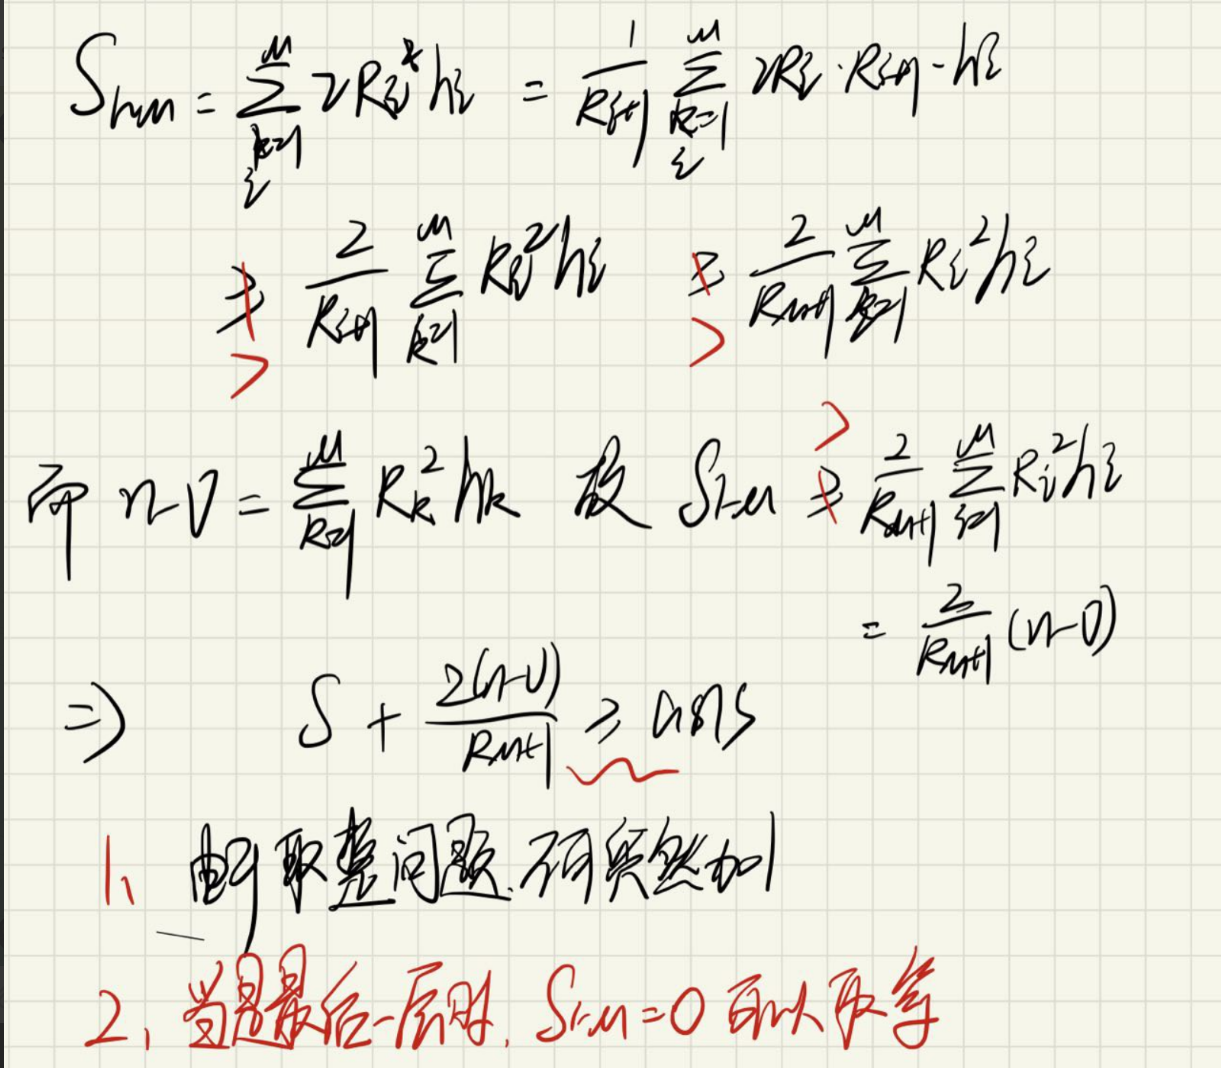 S₁~M = Σ_{k=1 i}^{M} 2Rᵢhᵢ = 1/Rᵢ₊₁ Σ_{k=1 i}^{M} 2Rᵢ·Rᵢ₊₁·hᵢ
≥ > 2/Rᵢ₊₁ Σ_{k=1}^{M} Rᵢ²hᵢ ≥ > 2/R_{M+1} Σ_{k=1}^{M} Rᵢ²hᵢ
而 n-V = Σ_{k=1}^{M} Rₖ²hₖ 故 S₁~M ≥ > 2/R_{M+1} Σ_{i=1}^{M} Rᵢ²hᵢ
= 2/R_{M+1} (n-V)
⇒ S + 2(n-V)/R_{M+1} ≥ ans
1、由于取整问题.不可突然加1
2、当是最后一层时,S₁~M=0 可以取等